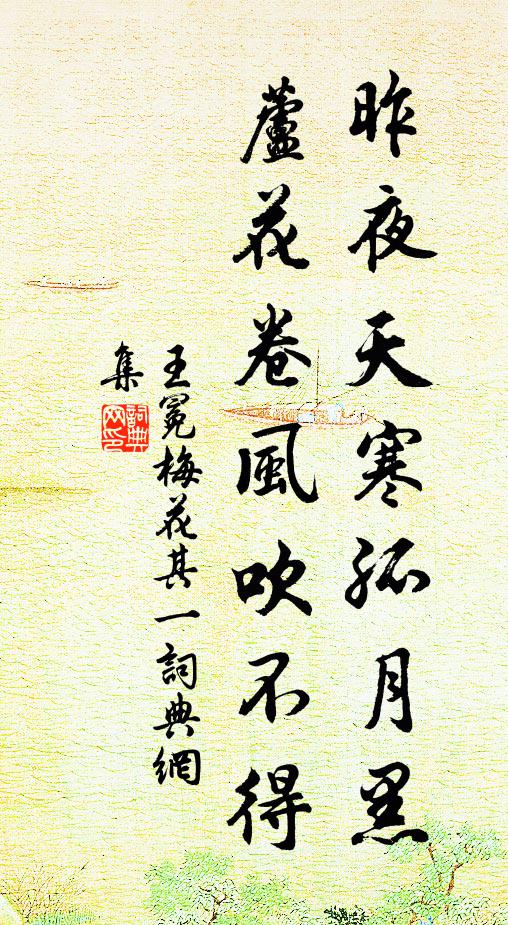 昨夜天寒孤月黑
蘆花卷風吹不得
王冕梅花其一詞典網
集
詞典
網印